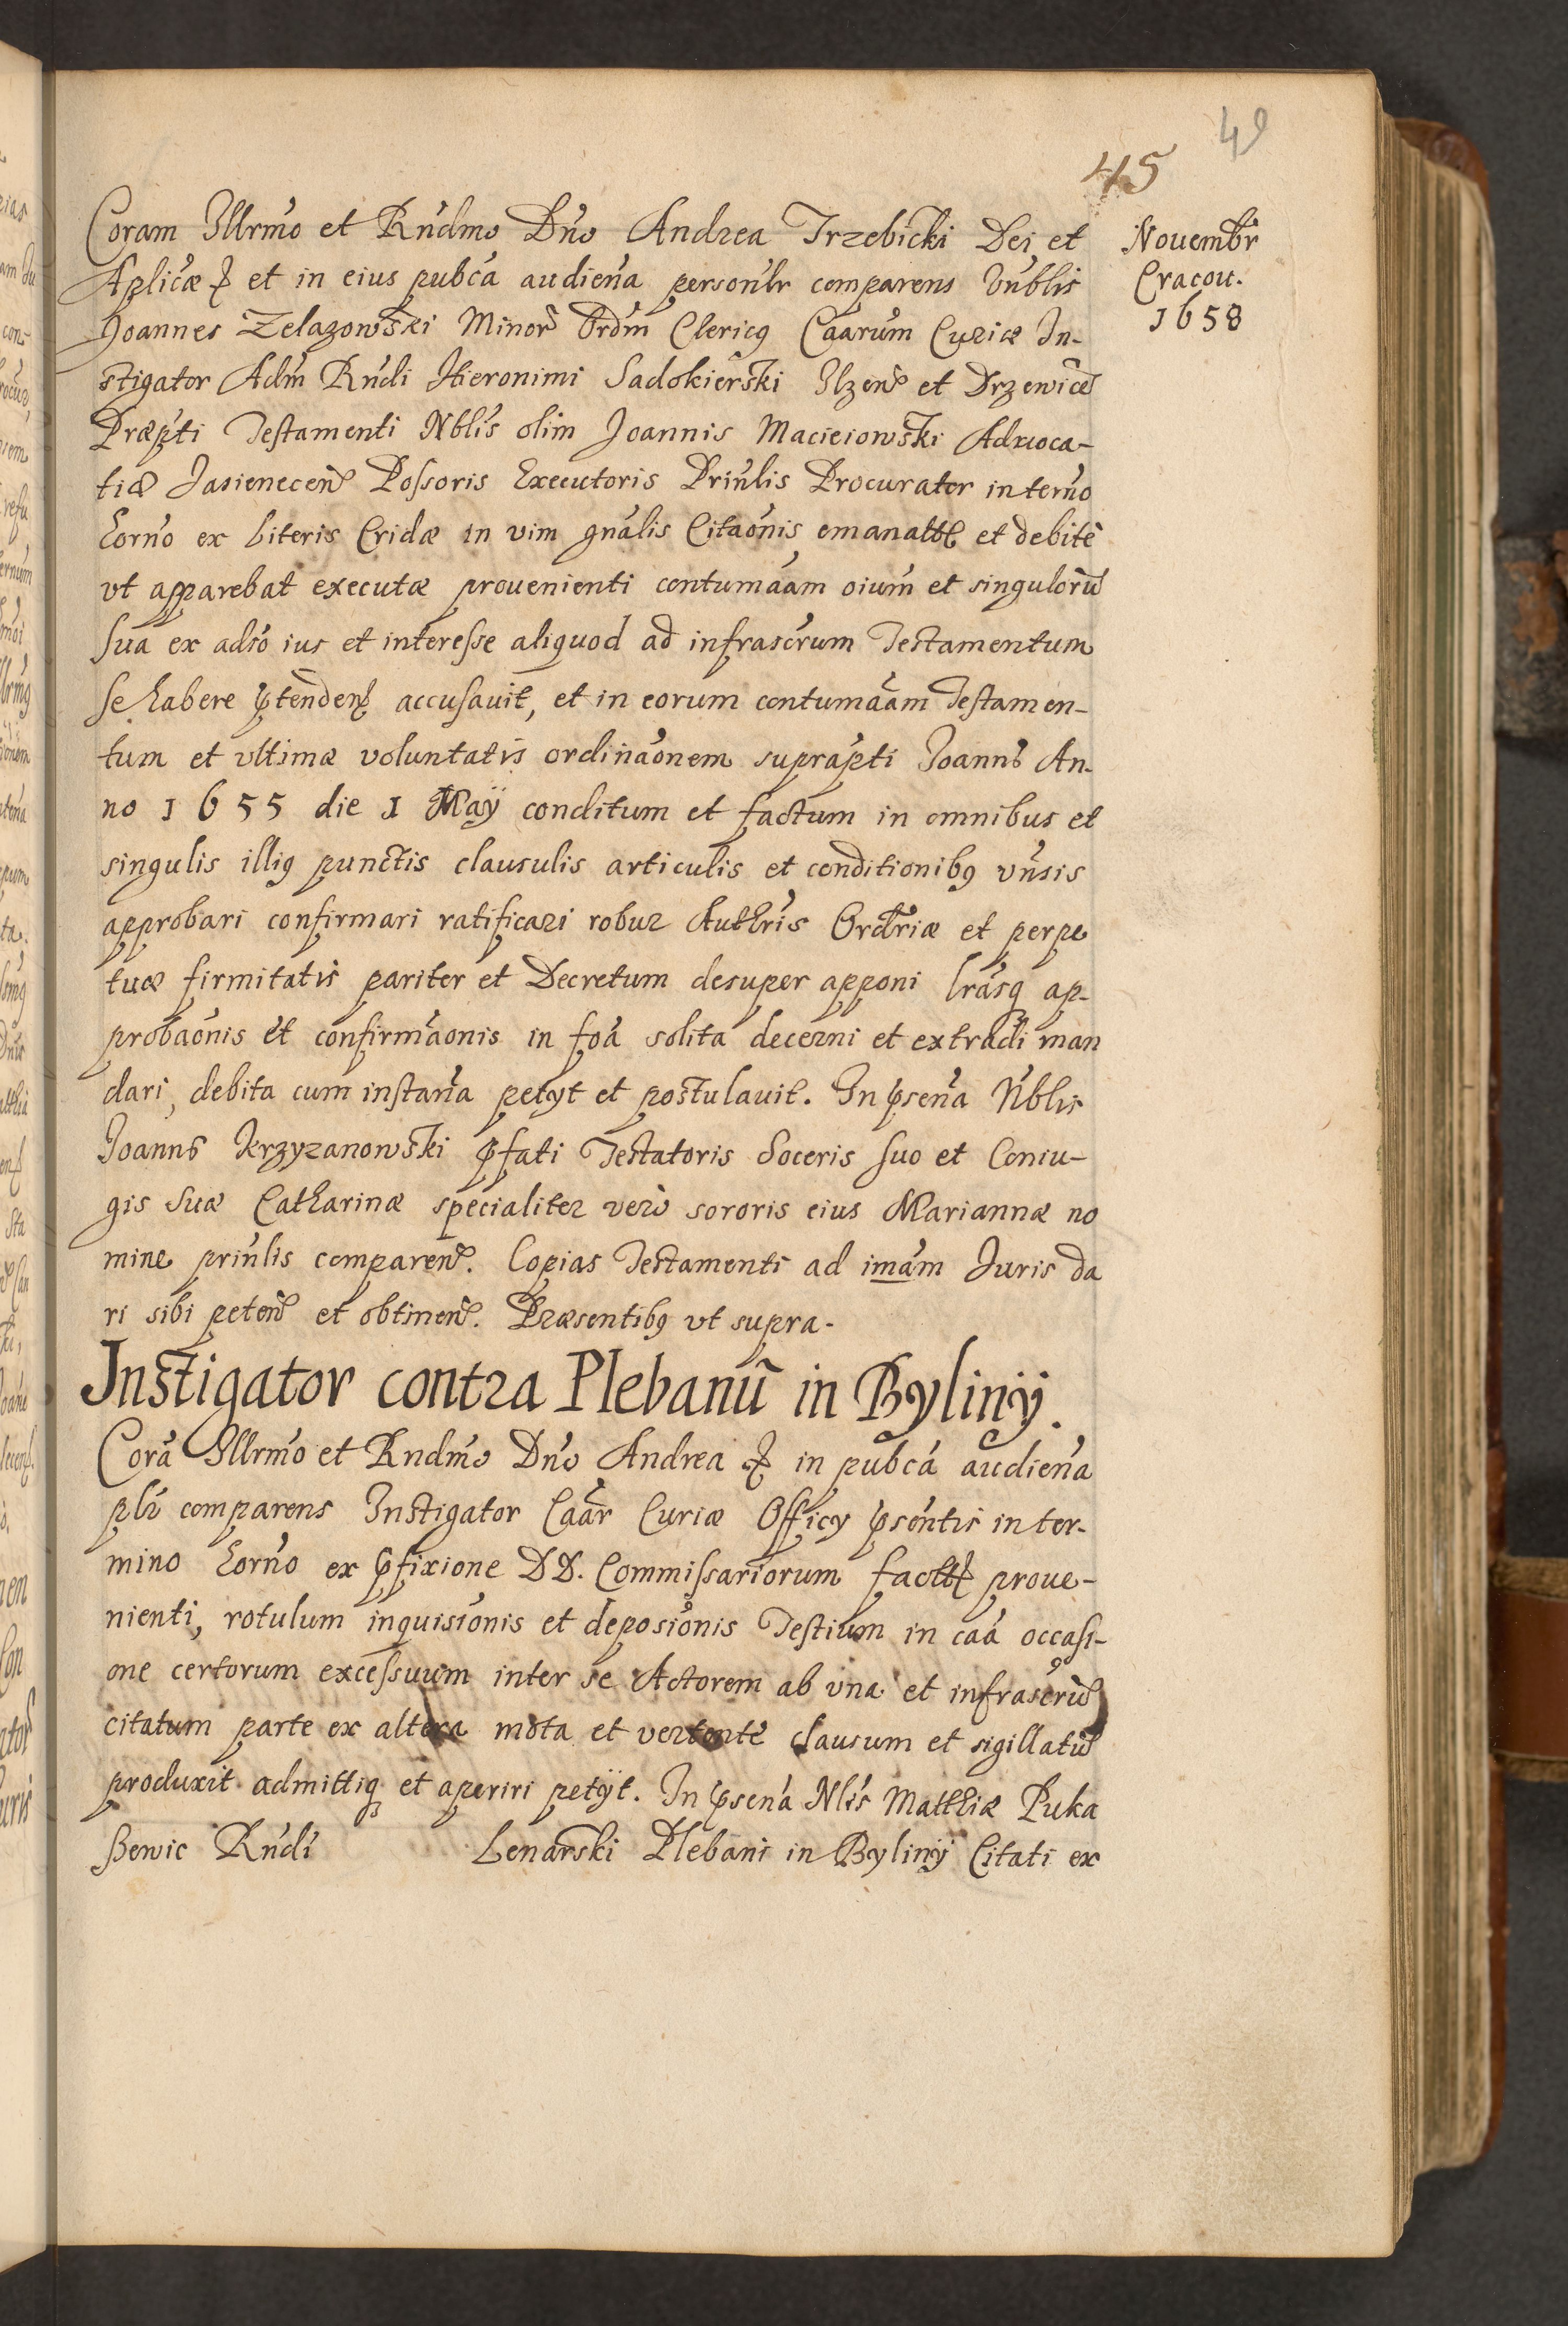 49
45
Novembr̃
Cracou.
1658
Coram Illrm̃o et Rñdmo Dño Andrea Trzebicki Dei et
Aplicæ ꝛ et in eius pubca audieña persoñlr comparens Vnblis
Joannes Zelazowski Minor̃ Ordm̃ Clericꝯ Caarum Curiæ In-
stigator Adm̃ Rñdi Hieronimi Sadokierski Ilzeñ et Drzewiceñ
Præp̃ti Testamenti Nbl̃is olim Joannis Macieiowski Advoca-
tiæ Jasieneceñ Possoris Executoris Priñlis Procurator in term̃o
horño ex literis Cridæ in vim gñalis Citaõnis emanatt et debite
vt apparebat executæ provenienti contumãam oium̃ et singulorũ
sua ex adso ius et interesse aliquod ad infrascr̃um Testamentum
se habere p̃tendeñ accusavit, et in eorum contumãam Testamen-
tum et vltimæ voluntatis ordinaõnem suprap̃ti Joanns An-
no 1655 die 1 Maÿ conditum et factum in omnibus et
singulis illiꝯ punctis clausulis articulis et conditionibꝯ vñsis
approbari confirmari ratificari robur Authr̃is Ordr̃iæ et perpe
tuæ firmitatis pariter et Decretum desuper apponi lr̃asq ap-
probaõnis et confirmaõnis in foã solita decerni et extradi man
dari, debita cum instañа petyt et postulavit. In p̃señа Nblis
Joanns Krzyzanowski p̃fati Testatoris Soceris suo et Coniu-
gis suæ Catharinæ specialiter verò sororis eius Mariannæ no
mine priñlis compareñ. Copias Testamenti ad imãm Juris da
ri sibi peteñ et obtineñ. Præsentibꝯ vt supra.
Instigator contra Plebanũ in Bylinÿ.
Corã Illrm̃o et Rndm̃o Dño Andrea ꝛ in pubcã audieña
plr̃ comparens Instigator Caar̃ Curiæ Officy p̃sentis in ter-
mino horño ex p̃fixione DD. Commissariorum factt prove-
nienti, rotulum inquisiõnis et deposiõnis Testium in caã occasi-
one certorum excessuum inter se Actorem ab vna et infrascrũ
citatum parte ex altera mota et vertente clausum et sigillatũ
produxit admittiq et aperiri petÿt. In p̃señа Nl̃is Matthiæ Puka
ßewic Rñdi Lenarski Plebani in Bylinÿ Citati ex